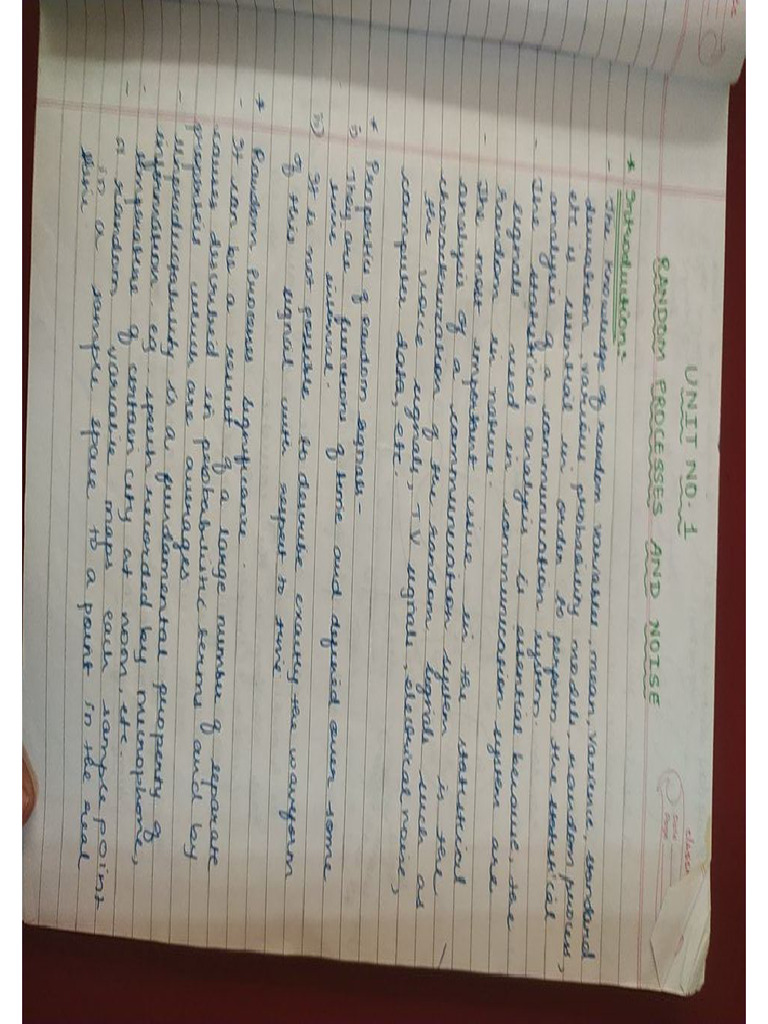 classmate
Date
Page
UNIT NO. 1
RANDOM PROCESSES AND NOISE
* Introduction:-
- The knowledge of random variables, mean, variance, standard
deviation, various probability models, random process,
etc is essential in order to perform the statistical
analysis of a communication system.
- The statistical analysis is essential because, the
signals used in communication system are
random in nature.
- The most important issue in the statistical
analysis of a communication system is the
characterization of the random signals such as
the voice signals, TV signals, electrical noise,
computer data, etc.
* Properties of random signals-
i) They are functions of time and defined over some
time interval.
ii) It is not possible to describe exactly the waveform
of this signal with respect to time
* Random Process significance
- It can be a result of a large number of separate
causes described in probabilistic terms and by
properties which are averages
- Unpredictability is a fundamental property of
information eg. speech recorded by microphone,
- temperature of certain city at noon, etc.
- A random variable maps each sample point
in a sample space to a point in the real
line